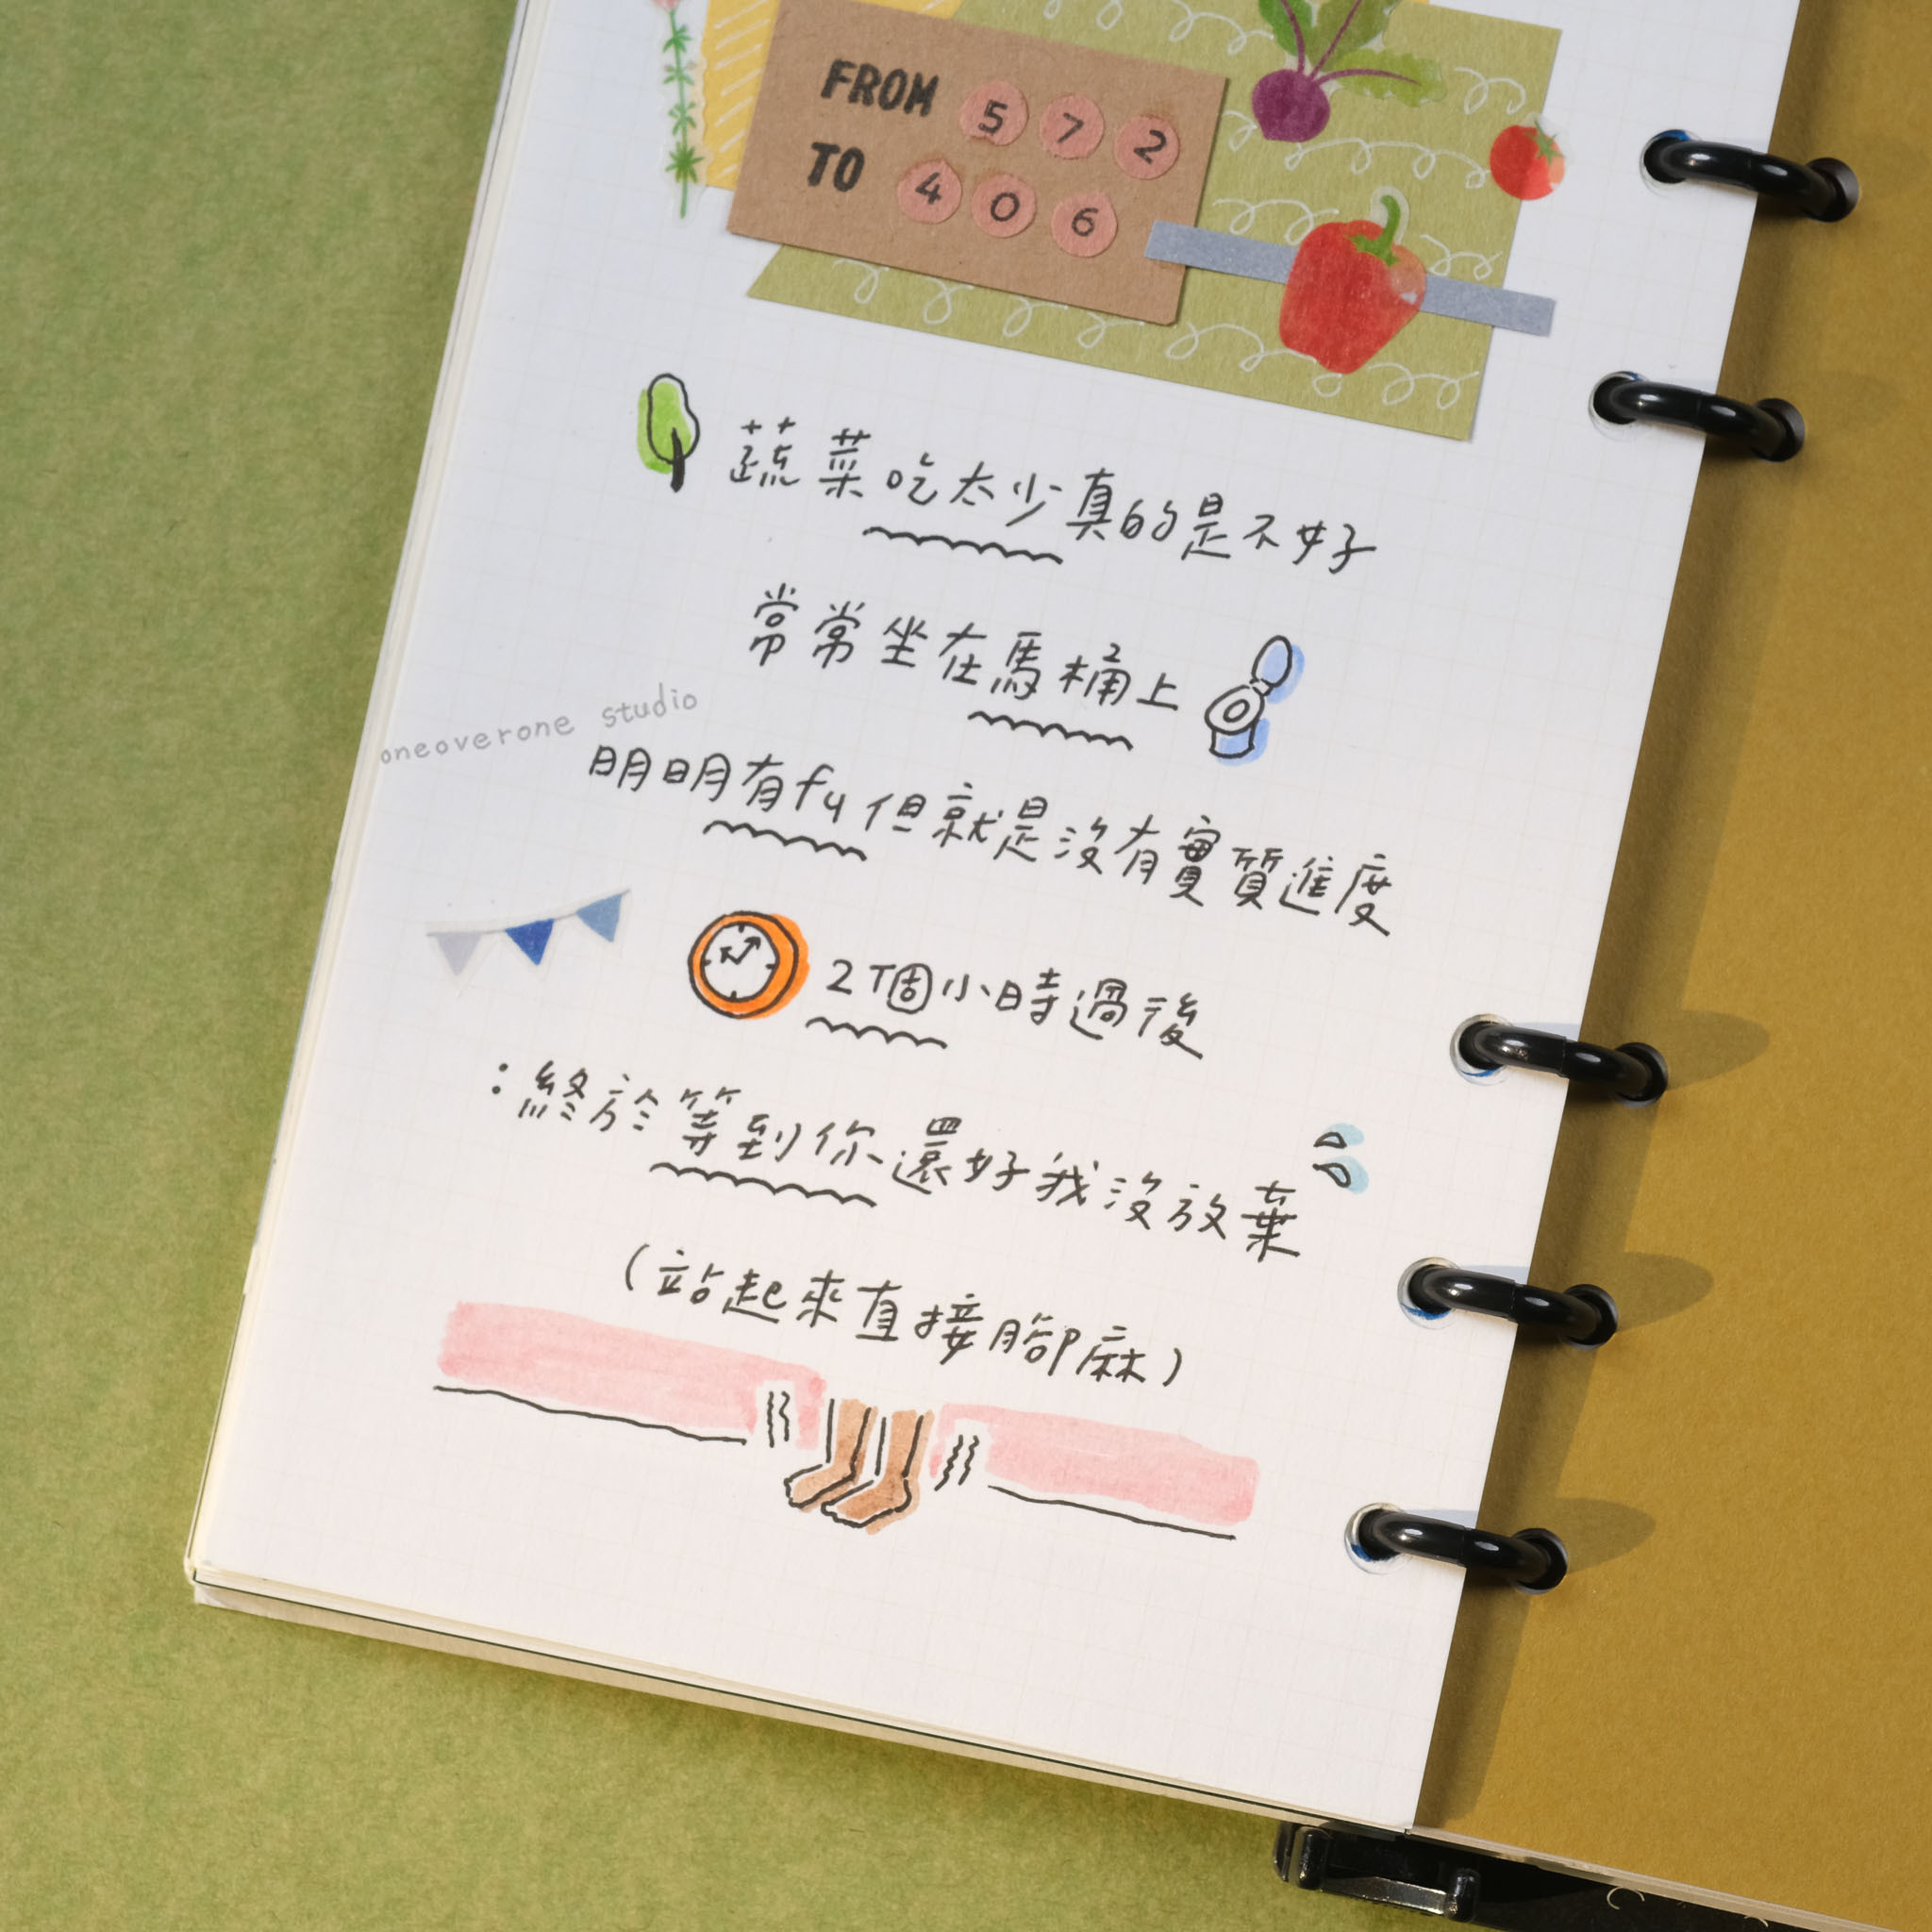 FROM 572
TO 406
蔬菜吃太少真的是不好
常常坐在馬桶上
oneoverone studio
明明有fu但就是沒有實質進度
2個小時過後
：終於等到你還好我沒放棄
（站起來直接腳麻）